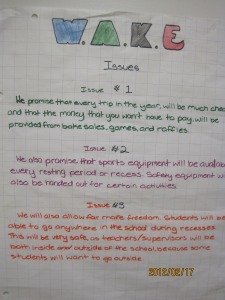 W.A.K.E
Issues
Issue #1
We promise that every trip in the year, will be much
and that the money that you won't have to pay, will be
provided from bake sales, games, and raffles.
Issue #2
We also promise that sports equipment will be
every resting period or recess. Safety equipment
also be handed out for certain activities.
Issue #3
We will also allow for more freedom. Students will be
able to go anywhere in the school during recesses.
This will be very safe, as teachers/supervisors will be
both inside and outside of the school, because some
students will want to go outside.
2012/02/17